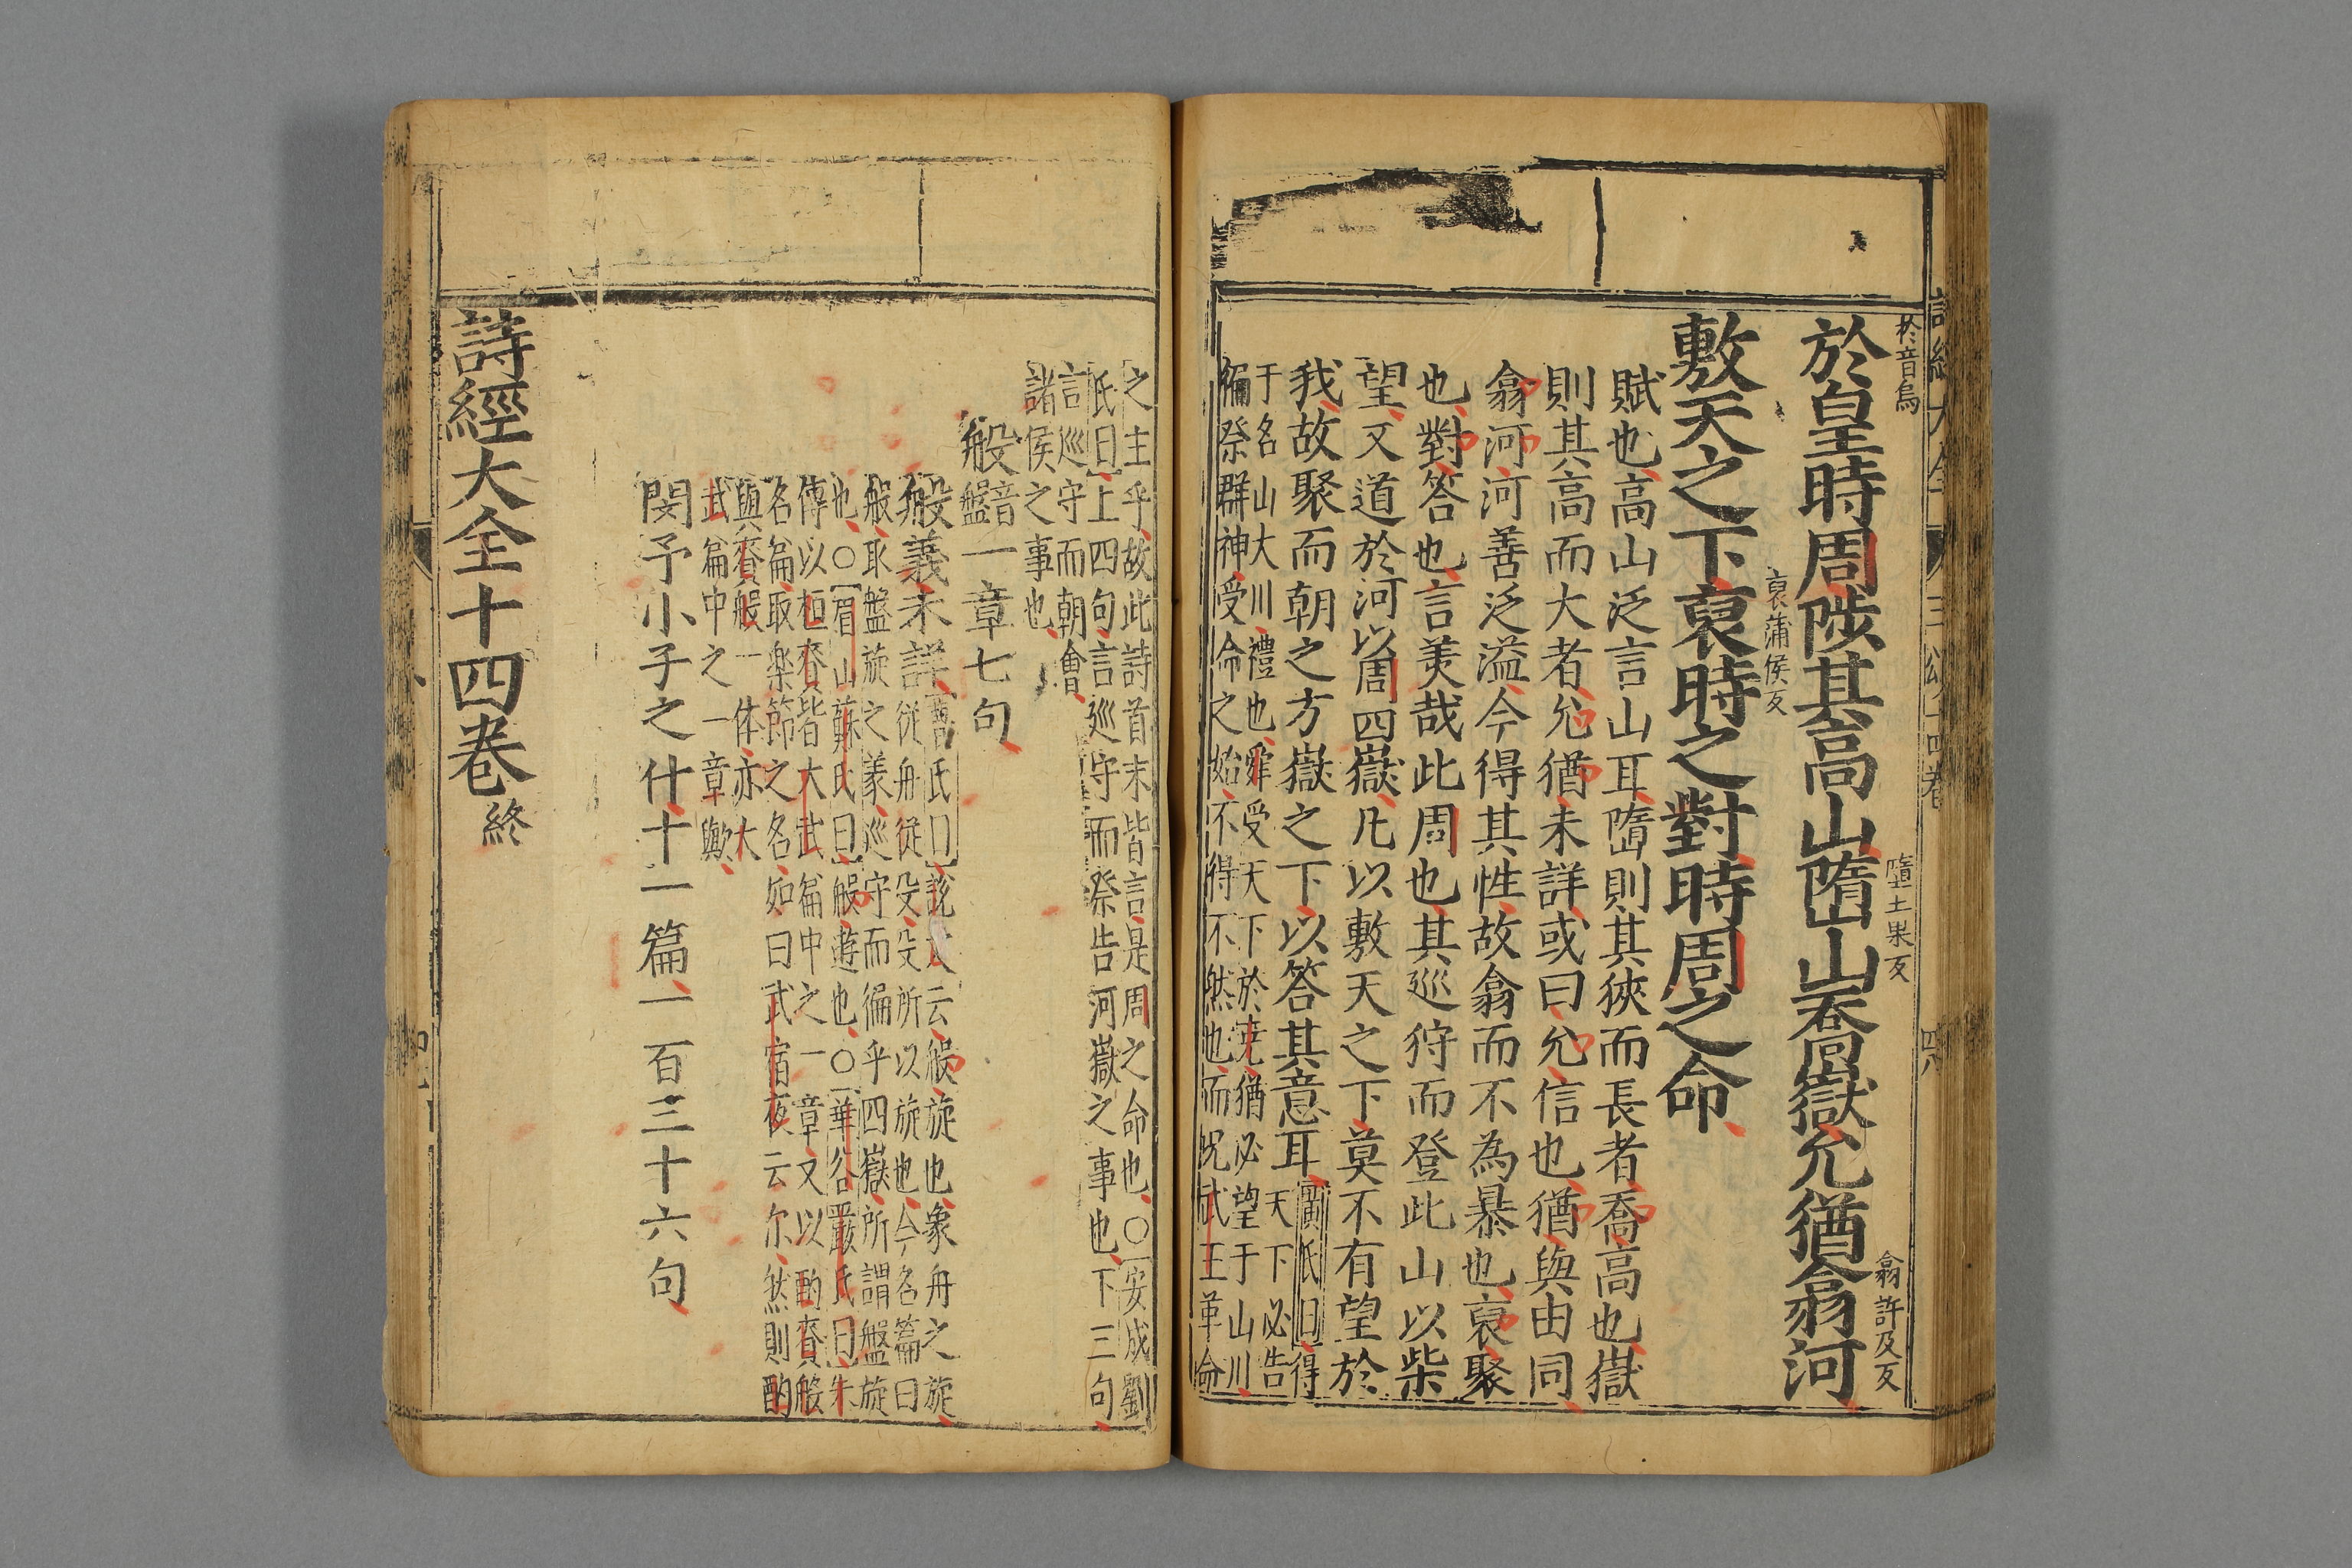 詩經大全 三頌十四卷
於音烏 嶞土果反 翕許及反
於皇時周陟其高山嶞山喬嶽允猶翕河
裒蒲侯反
敷天之下裒時之對時周之命
賦也高山泛言山耳嶞則其狹而長者喬高也嶽
則其高而大者允猶未詳或曰允信也猶與由同
翕河河善泛溢今得其性故翕而不為暴也裒聚
也對答也言美哉此周也其巡狩而登此山以柴
望又道於河以周四嶽凡以敷天之下莫不有望於
我故聚而朝之方嶽之下以答其意耳廣氏曰得
天下必告
于名山大川禮也舜受天下於堯猶必望于山川
徧祭群神受命之始不得不然也而况武王革命
之主乎故此詩首末皆言是周之命也○安成劉
氏曰上四句言巡守而祭告河嶽之事也下三句
言巡守而朝會
諸侯之事也
般音盤一章七句
般義未詳曹氏曰說文云般旋也象舟之旋
從舟從殳殳所以旋也今名篇曰
般取盤旋之義巡守而徧乎四嶽所謂盤旋
也○眉山蘇氏曰般遊也○華谷嚴氏曰朱
傳以桓賚皆大武篇中之一章又以酌賚般
名篇取楽節之名如曰武宿夜云尔然則酌
與賚般一体亦大
武篇中之一章歟
閔予小子之什十一篇一百三十六句
詩經大全十四卷終